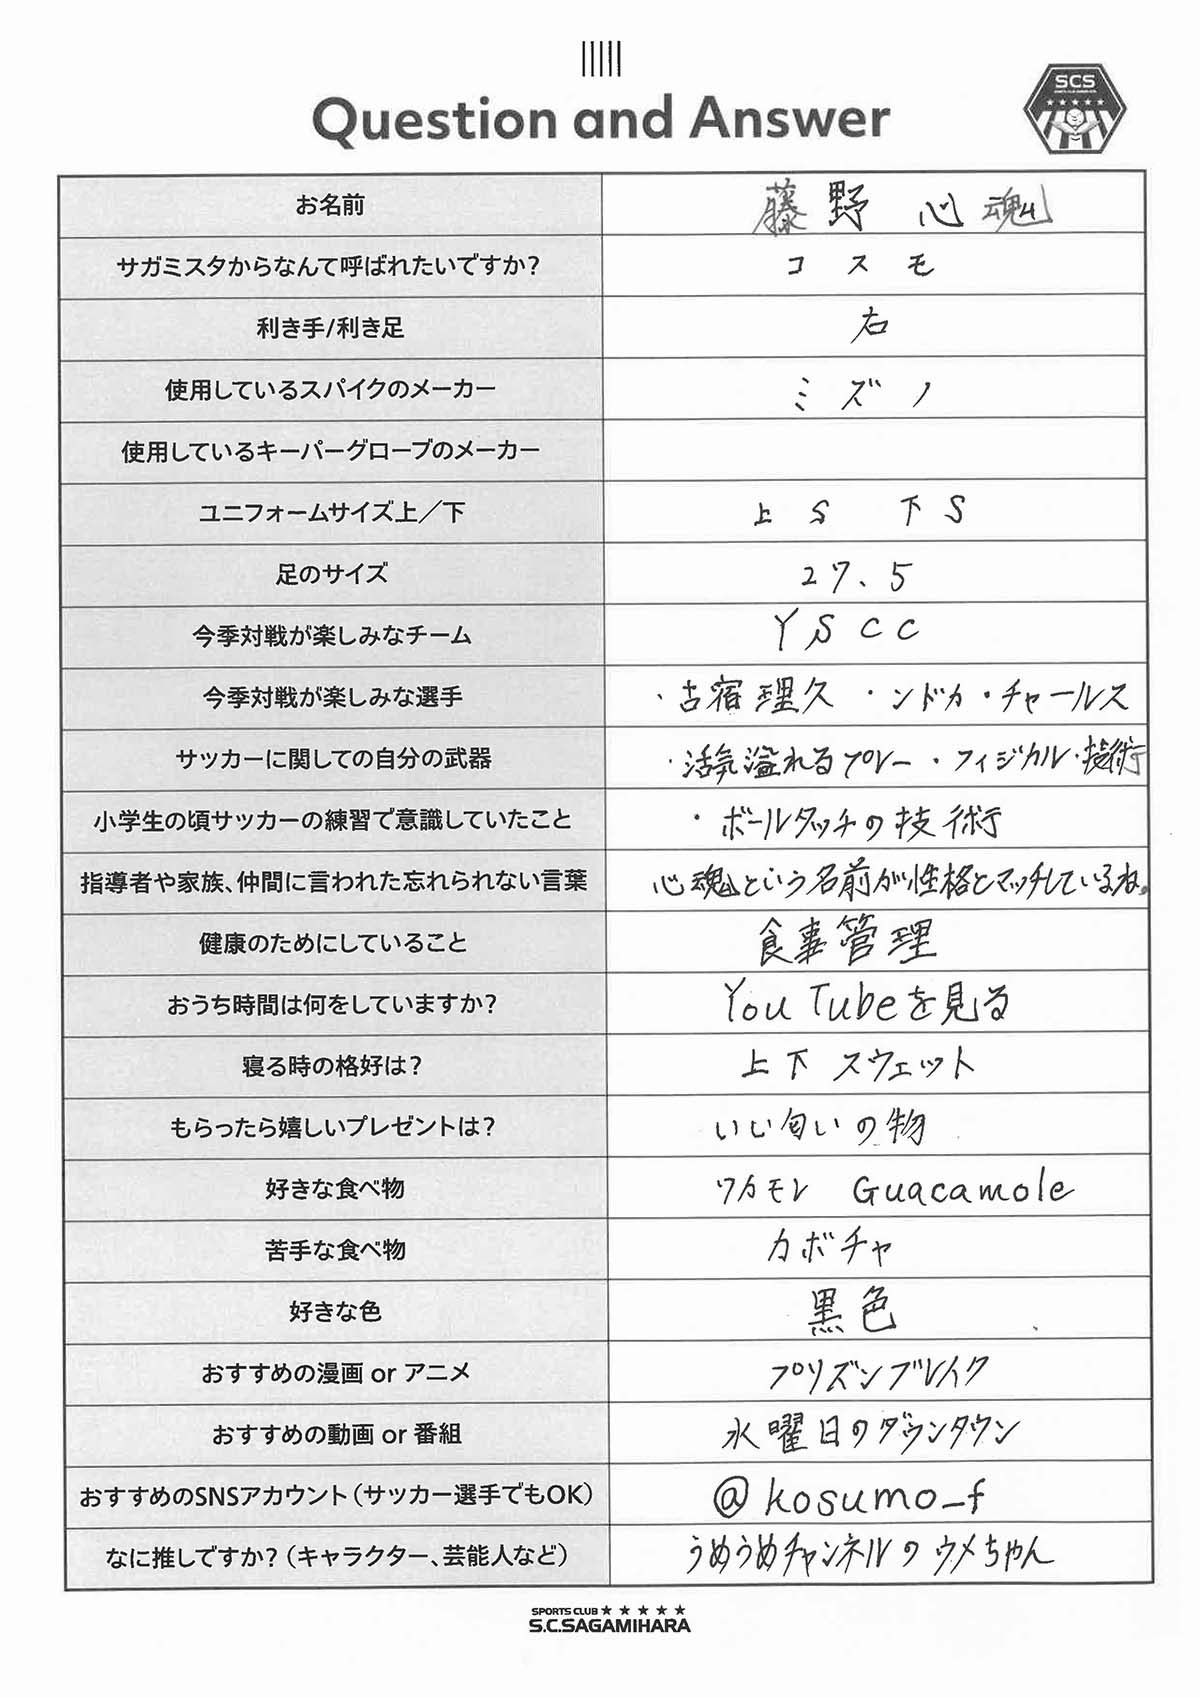 Question and Answer
SCS
お名前 藤野 心魂
サガミスタからなんて呼ばれたいですか? コスモ
利き手/利き足 右
使用しているスパイクのメーカー ミズノ
使用しているキーパーグローブのメーカー
ユニフォームサイズ上／下 上 S 下 S
足のサイズ 27.5
今季対戦が楽しみなチーム YSCC
今季対戦が楽しみな選手 ・古宿理久 ・ンドカ・チャールス
サッカーに関しての自分の武器 ・活気溢れるプレー ・フィジカル・技術
小学生の頃サッカーの練習で意識していたこと ・ボールタッチの技術
指導者や家族、仲間に言われた忘れられない言葉 心魂という名前が性格とマッチしているね。
健康のためにしていること 食事管理
おうち時間は何をしていますか? YouTubeを見る
寝る時の格好は? 上下 スウェット
もらったら嬉しいプレゼントは? いい匂いの物
好きな食べ物 ワカモレ Guacamole
苦手な食べ物 カボチャ
好きな色 黒色
おすすめの漫画 or アニメ プリズンブレイク
おすすめの動画 or 番組 水曜日のダウンタウン
おすすめのSNSアカウント（サッカー選手でもOK） @kosumo_f
なに推しですか?（キャラクター、芸能人など） うめうめチャンネルのウメちゃん
SPORTS CLUB ★ ★ ★ ★ ★
S.C.SAGAMIHARA